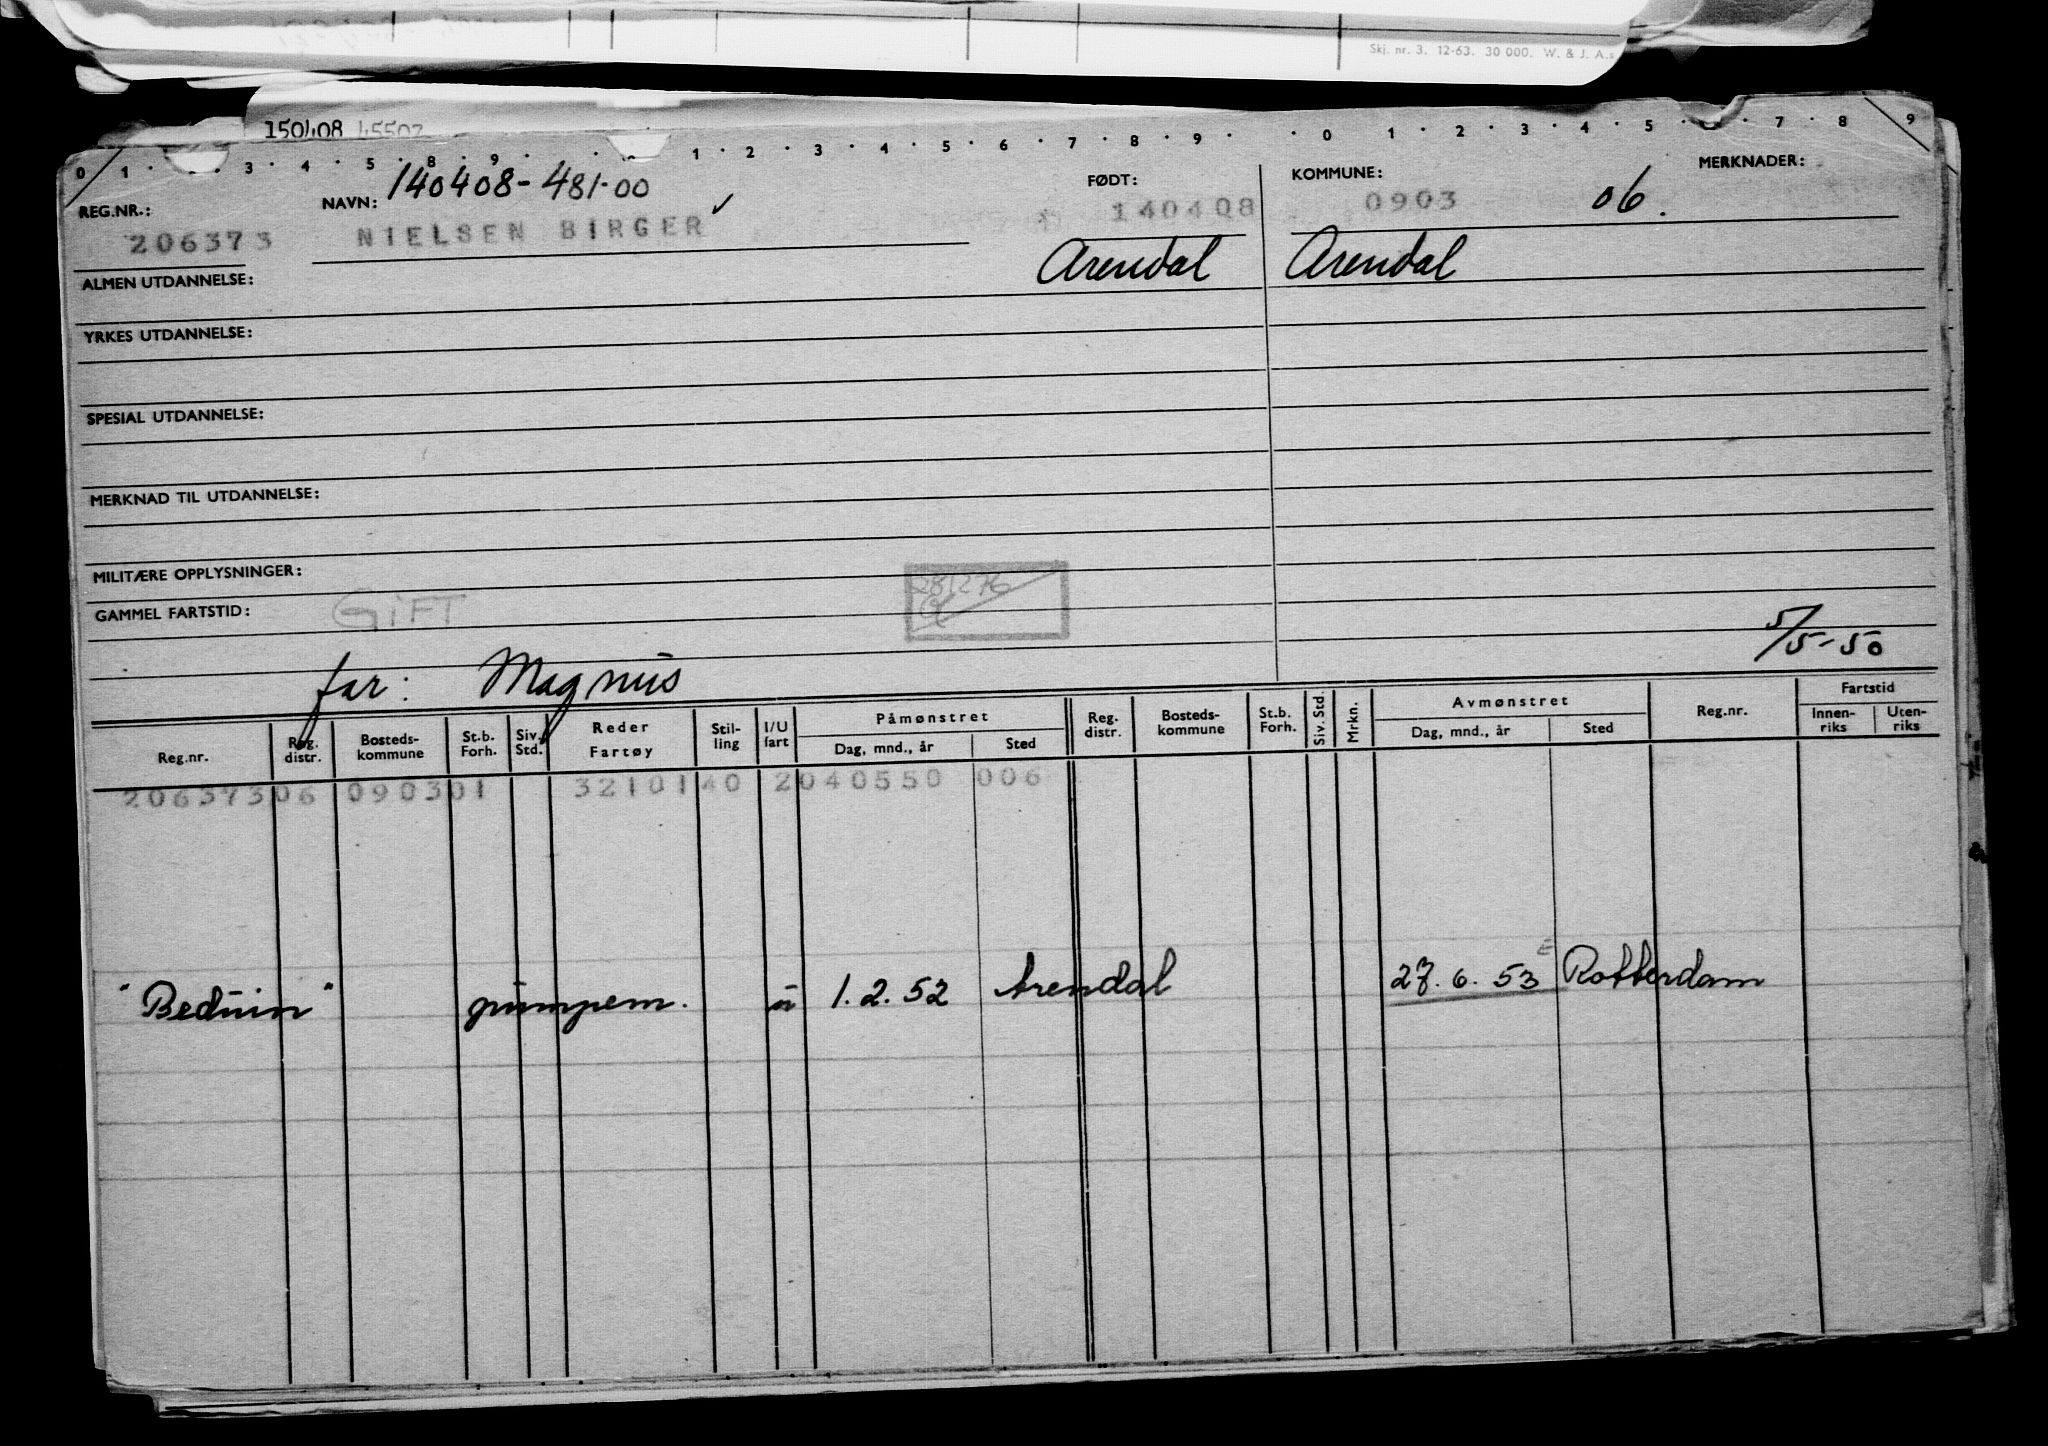 Skj. nr. 3. 12-63. 30 000. W. & J. A.s
150408 45502
0 1 · 3 · 4 · 5 · 8 · 9 · 1 · 2 · 3 · 4 · 5 · 6 · 7 · 8 · 9 · · 0 · 1 · 2 · 3 · 4 · 5 · · 7 · 8 9
REG.NR.: NAVN: 140408-481-00 ✓ FØDT: KOMMUNE: 06. MERKNADER:
206373 NIELSEN BIRGER 140408 0903
Arendal Arendal
ALMEN UTDANNELSE:
YRKES UTDANNELSE:
SPESIAL UTDANNELSE:
MERKNAD TIL UTDANNELSE:
MILITÆRE OPPLYSNINGER:
281276
GAMMEL FARTSTID: GIFT
5/5-50
far: Magnus
Reg.nr. Reg. distr. Bosteds-kommune St.b. Forh. Siv. Std. Reder Fartøy Stil-ling I/U fart Påmønstret Dag, mnd., år Sted Reg. distr. Bosteds-kommune St.b. Forh. Siv. Std. Mrkn. Avmønstret Dag, mnd., år Sted Reg.nr. Fartstid Innen-riks Uten-riks
206373 06 0903 01 32101 40 2 040550 006
"Beduin" pumpem. u 1.2.52 Arendal 27.6.53 E Rotterdam